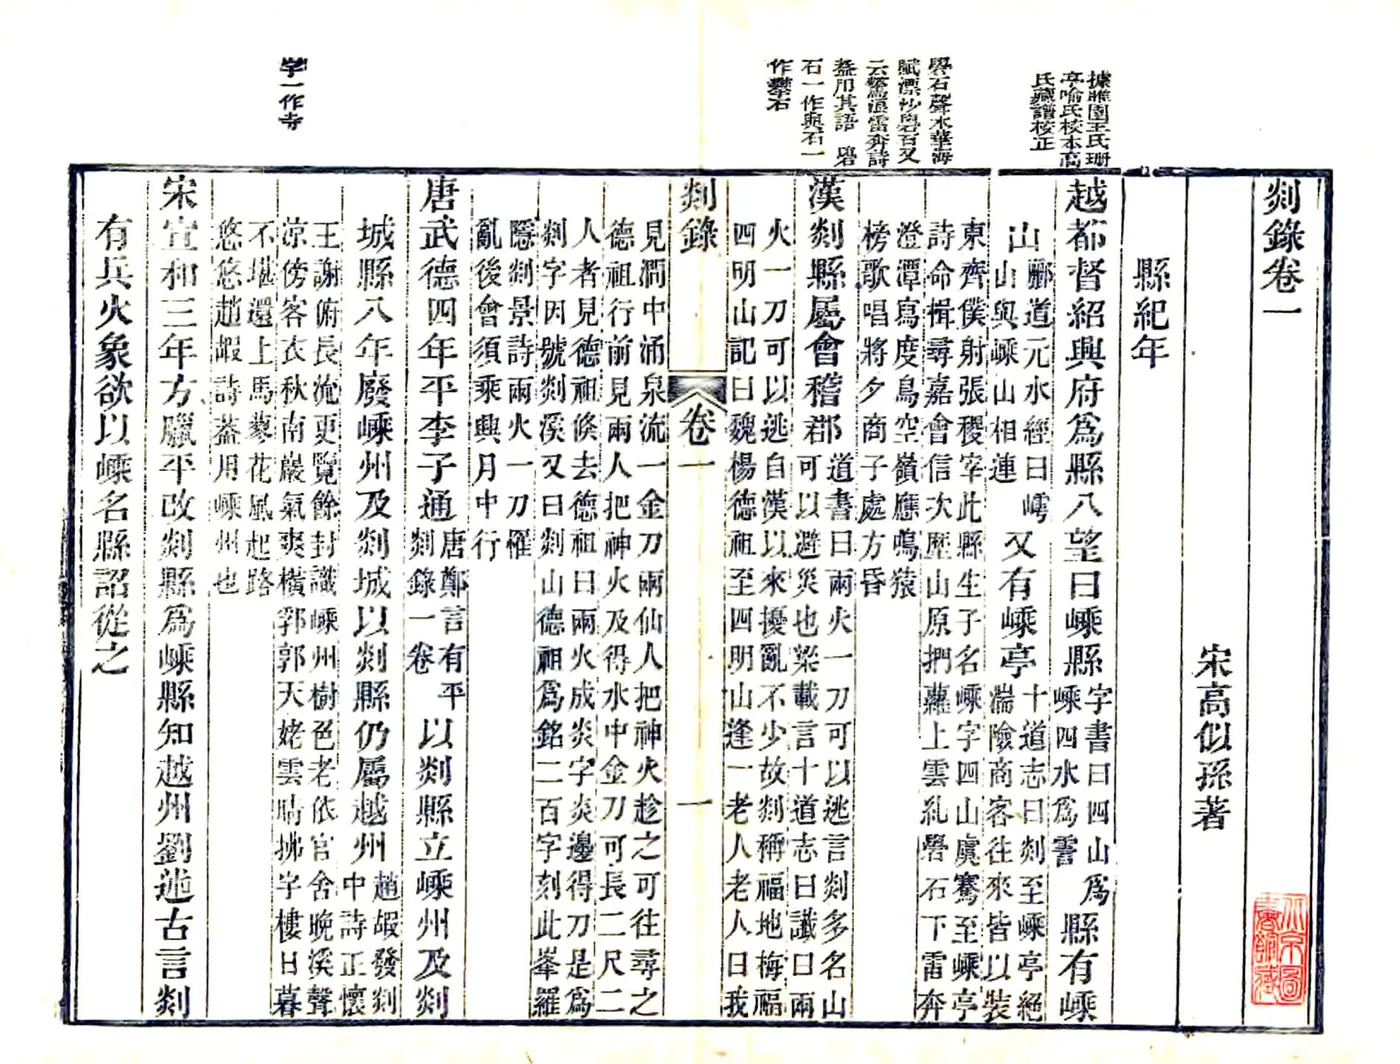 剡錄卷一
宋高似孫著
縣紀年
據雅園王氏珊
亭喻氏校本高
氏藏譜校正
越都督紹興府爲縣八望曰嵊縣
字書曰四山爲
嵊四水爲䨮
縣有嵊
山
酈道元水經曰崿
山與嵊山相連
又有嵊亭
十道志曰剡至嵊亭絕
湍險商客往來皆以裝
東齊僕射張稷宰此縣生子名嵊字四山虞騫至嵊亭
詩命楫尋嘉會信次歷山原捫蘿上雲糺礐石下雷奔
澄潭寫度鳥空嶺應鳴猿
榜歌唱將夕商子處方昏
礐石聲木華海
賦漂沙礐石又
云驚浪雷奔詩
葢用其語 礐
石一作與石一
作攀石
漢剡縣屬會稽郡
道書曰兩火一刀可以逃言剡多名山
可以避災也梁載言十道志曰讖曰兩
火一刀可以逃自漢以來擾亂不少故剡稱福地梅福
四明山記曰魏楊德祖至四明山逢一老人老人曰我
剡錄 卷一 一
見澗中涌泉流一金刀兩仙人把神火趁之可往尋之
德祖行前見兩人把神火及得水中金刀可長二尺二
人者見德祖倏去德祖曰兩火成炎字炎邊得刀是爲
剡字因號剡溪又曰剡山德祖爲銘二百字刻此峯羅
隱剡景詩兩火一刀罹
亂後會須乘興月中行
唐武德四年平李子通
唐鄭言有平
剡錄一卷
以剡縣立嵊州及剡
城縣八年廢嵊州及剡城以剡縣仍屬越州
趙嘏發剡
中詩正懷
王謝俯長流更覽餘封識嵊州樹色老依官舍晚溪聲
涼傍客衣秋南巖氣爽橫郛郭天姥雲晴拂字樓日暮
不堪還上馬蓼花風起路
悠悠趙嘏詩葢用嵊州也
字一作寺
宋宣和三年方臘平改剡縣爲嵊縣知越州劉述古言剡
有兵火象欲以嵊名縣詔從之
北京圖
書館藏